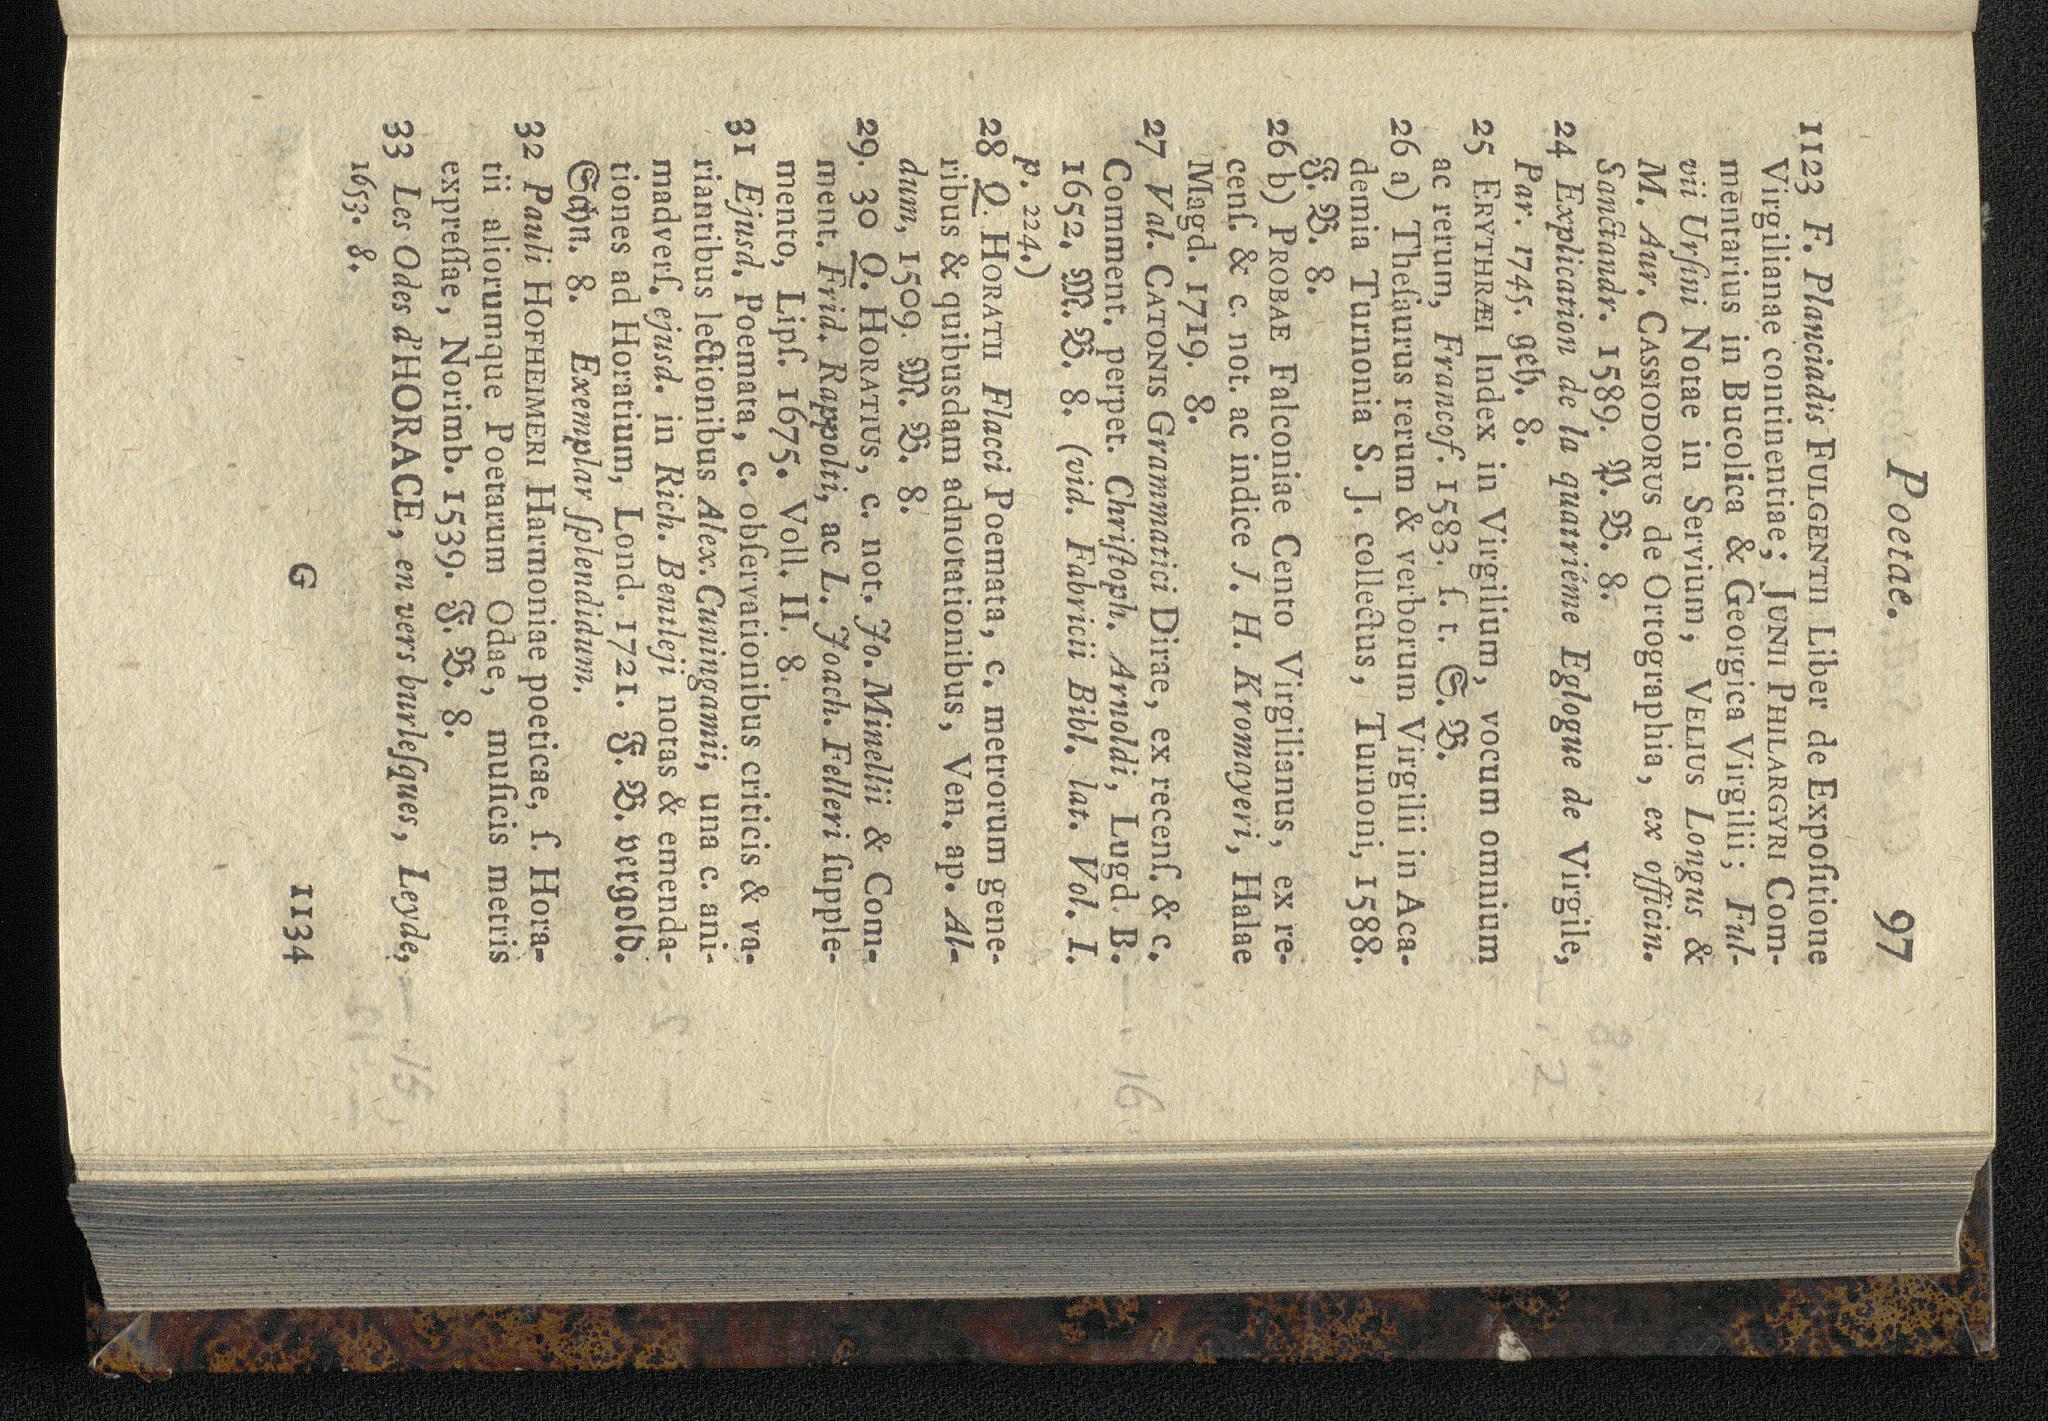 Poetae. 97
1123 F. Planciadis FULGENTII Liber de Expoſitione
Virgilianae continentiae; JUNII PHILARGYRI Com-
mentarius in Bucolica & Georgica Virgilii; Ful-
vii Urſini Notae in Servium, VELIUS Longus &
M. Aur. CASSIODORUS de Ortographia, ex officin.
Sanctandr. 1589. P. B. 8.
24 Explication de la quatriéme Eglogue de Virgile,
Par. 1745. geh. 8.
25 ERYTHRÆI Index in Virgilium, vocum omnium
ac rerum, Francof. 1583. ſ. t. S. B.
26 a) Theſaurus rerum & verborum Virgilii in Aca-
demia Turnonia S. J. collectus, Turnoni, 1588.
F. B. 8.
26 b) PROBAE Falconiae Cento Virgilianus, ex re-
cenſ. & c. not. ac indice J. H. Kromayeri, Halae
Magd. 1719. 8.
27 Val. CATONIS Grammatici Dirae, ex recenſ. & c.
Comment. perpet. Chriſtoph. Arnoldi, Lugd. B.
1652. M. B. 8. (vid. Fabricii Bibl. lat. Vol. I.
p. 224.)
28 Q. HORATII Flacci Poemata, c. metrorum gene-
ribus & quibusdam adnotationibus, Ven. ap. Al-
dum, 1509. M. B. 8.
29. 30 Q. HORATIUS, c. not. Jo. Minellii & Com-
ment. Frid. Rappolti, ac L. Joach. Felleri ſupple-
mento, Lipſ. 1675. Voll. II. 8.
31 Ejusd. Poemata, c. obſervationibus criticis & va-
riantibus lectionibus Alex. Cuningamii, una c. ani-
madverſ. ejusd. in Rich. Bentleji notas & emenda-
tiones ad Horatium, Lond. 1721. F. B. vergold.
Schn. 8. Exemplar ſplendidum.
32 Pauli HOFHEIMERI Harmoniae poeticae, ſ. Hora-
tii aliorumque Poetarum Odae, muſicis metris
expreſſae, Norimb. 1539. F. B. 8.
33 Les Odes d'HORACE, en vers burleſques, Leyde,
1653. 8.
G 1134